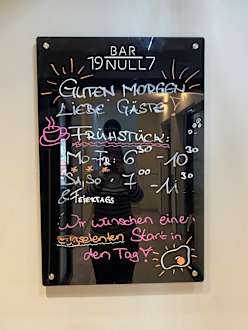 BAR
19NULL7
GUTEN MORGEN
LIEBE GÄSTE!
FRÜHSTÜCK:
Mo-FR: 6³⁰ - 10³⁰
Sa, So: 7⁰⁰ - 11³⁰
& FEIERTAGS
Wir wünschen einen
eigselenten Start in
den Tag